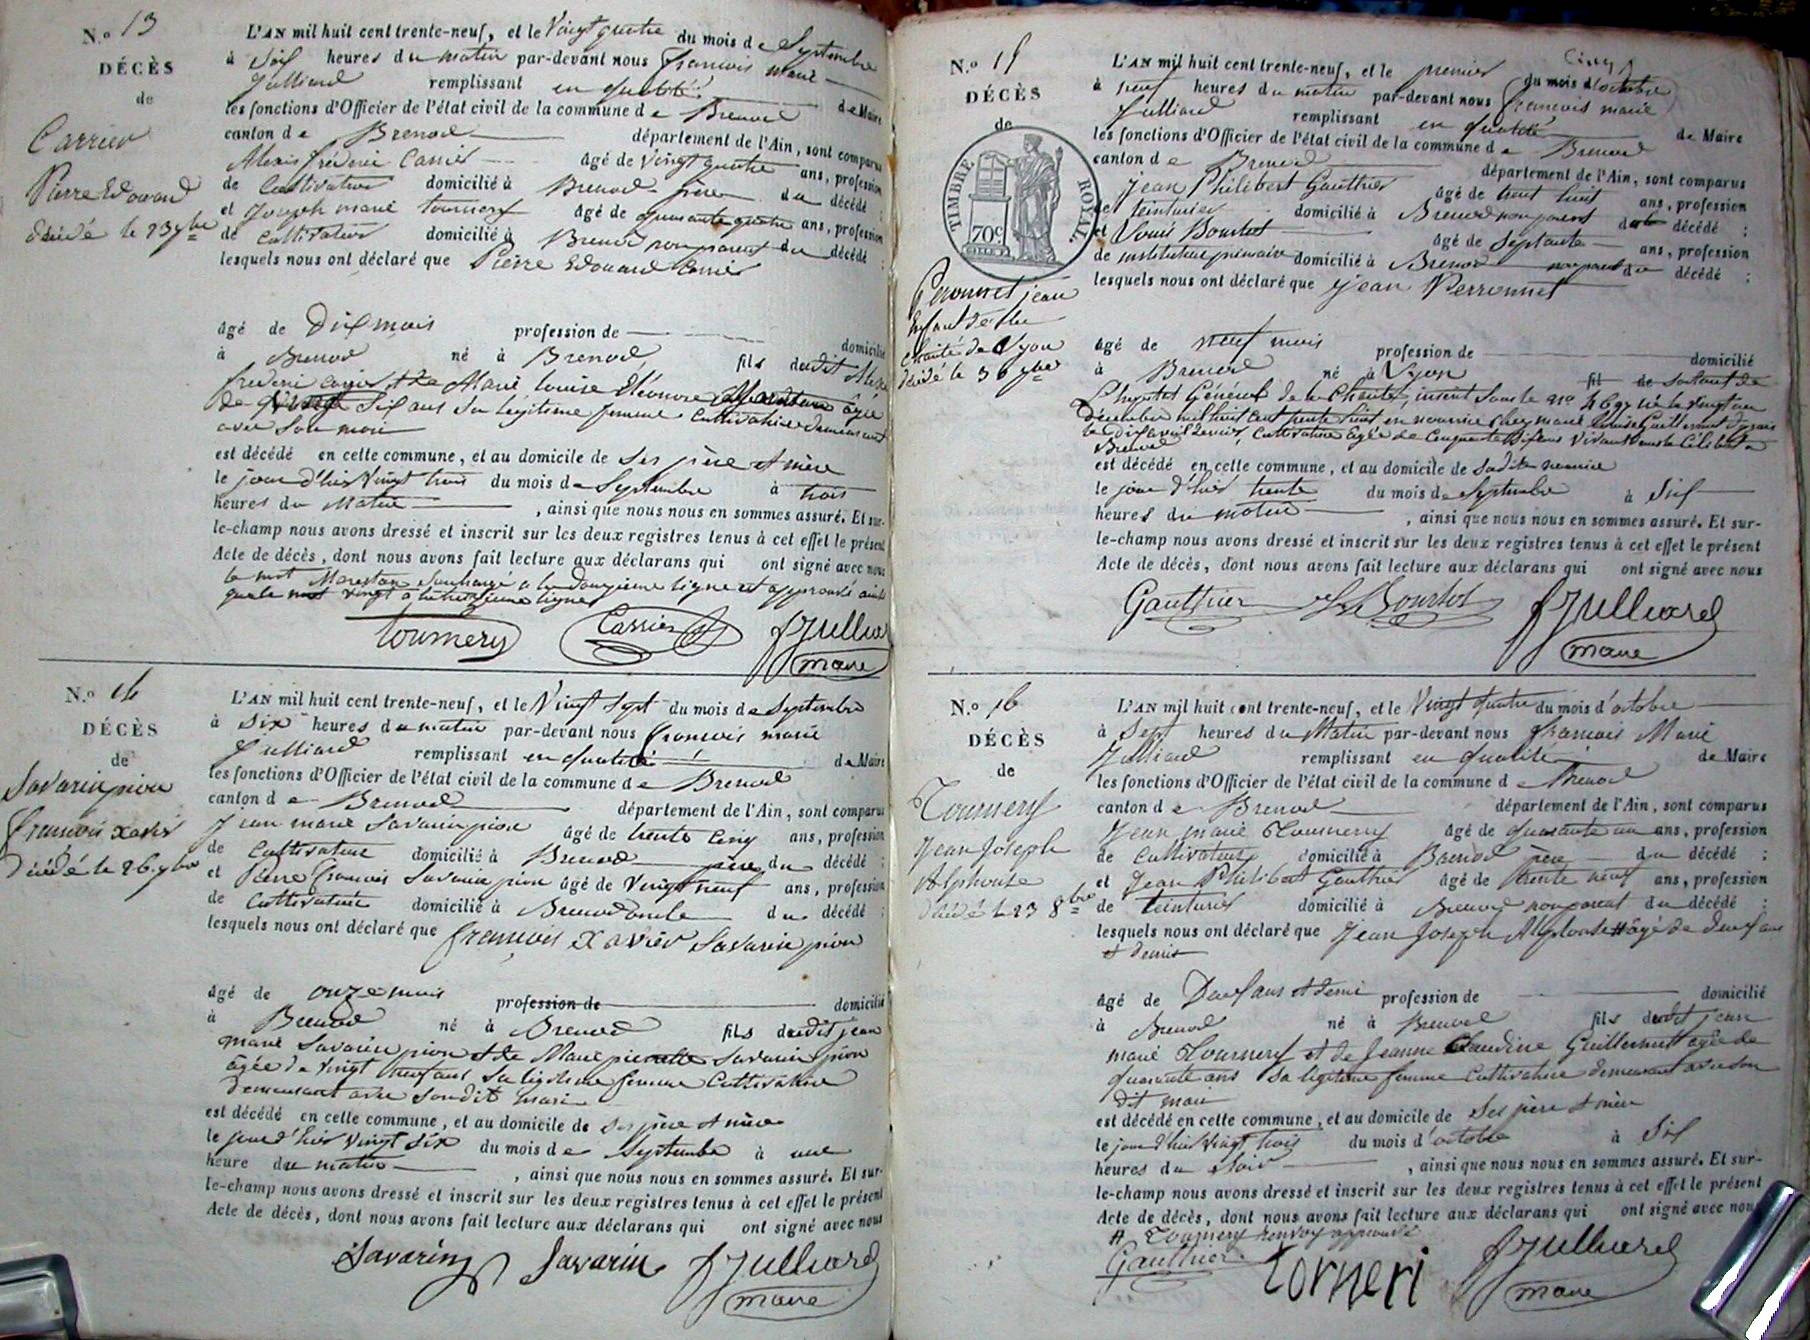 N.º 13
DÉCÈS
de
Carrier
Pierre Edouard
décédé le 23 7bre
L'AN mil huit cent trente-neuf, et le Vingt quatre du mois de Septembre
à Six heures du matin par-devant nous francois marie
Julliard remplissant en qualité de Maire
les fonctions d'Officier de l'état civil de la commune de Brenod
canton de Brenod département de l'Ain, sont comparus
Alexis frederic Carrier âgé de Vingt quatre ans, profession
de Cultivateur domicilié à Brenod frère du décédé ;
et Joseph marie tournery âgé de quarante quatre ans, profession
de Cultivateur domicilié à Brenod non parent du décédé ;
lesquels nous ont déclaré que Pierre Edouard Carrier
âgé de Dix mois profession de domicilié
à Brenod né à Brenod fils dudit Alexis
frederic Carrier et de Marie Louise Eléonore âgée
de Six ans Sa légitime femme Cultivatrice demeurant
avec Son mari
est décédé en cette commune, et au domicile de Ses père et mère
le jour d'hier Vingt trois du mois de Septembre à trois
heures du Matin , ainsi que nous nous en sommes assuré. Et sur-
le-champ nous avons dressé et inscrit sur les deux registres tenus à cet effet le présent
Acte de décès, dont nous avons fait lecture aux déclarans qui ont signé avec nous
le mot Surchargé à la Douzieme ligne est approuvé ainsi
que le mot vingt à la treizieme ligne
Tournery Carrier fJulliard
maire
N.º 14
DÉCÈS
de
Savarin pion
francois xavier
Décédé le 26 7bre
L'AN mil huit cent trente-neuf, et le Vingt Sept du mois de Septembre
à Six heures du matin par-devant nous francois marie
Julliard remplissant en qualité de Maire
les fonctions d'Officier de l'état civil de la commune de Brenod
canton de Brenod département de l'Ain, sont comparus
Jean marie Savarin pion âgé de trente Cinq ans, profession
de Cultivateur domicilié à Brenod père du décédé ;
et Pierre francois Savarin pion âgé de Vingt neuf ans, profession
de Cultivateur domicilié à Brenod oncle du décédé ;
lesquels nous ont déclaré que francois xavier Savarin pion
âgé de onze mois profession de domicilié
à Brenod né à Brenod fils dudit jean
marie Savarin pion et de Marie pierrette Savarin pion
âgée de vingt neuf ans Sa légitime femme Cultivatrice
Demeurant avec Sondit mari
est décédé en cette commune, et au domicile de Ses père et mère
le jour d'hier vingt Six du mois de Septembre à une
heure du matin , ainsi que nous nous en sommes assuré. Et sur-
le-champ nous avons dressé et inscrit sur les deux registres tenus à cet effet le présent
Acte de décès, dont nous avons fait lecture aux déclarans qui ont signé avec nous
Savarin Savarin fJulliard
maire
Cinq
N.º 15
DÉCÈS
de
TIMBRE ROYAL.
70c
Peronnet jean
Enfant de la
Charité de Lyon
décédé le 30 7bre
L'AN mil huit cent trente-neuf, et le premier du mois d'octobre
à neuf heures du matin par-devant nous francois marie
Julliard remplissant en qualité de Maire
les fonctions d'Officier de l'état civil de la commune de Brenod
canton de Brenod département de l'Ain, sont comparus
Jean Philibert Gauthier âgé de trent huit ans, profession
de teinturier domicilié à Brenod non parent du décédé ;
et Louis Bourlot âgé de Septante ans, profession
de instituteur primaire domicilié à Brenod non parent du décédé ;
lesquels nous ont déclaré que Jean Perronnet
âgé de neuf mois profession de domicilié
à Brenod né à Lyon fils de Sortant de
l'hopital Général de la Charité, inscrit Sous le n.º 4697 né le vingt un
Décembre mil huit cent trente huit en nourrice chez marie Louise Guillermet Depuis
le Dix avril dernier, Cultivatrice âgée de Cinquante Six ans vivant Dans le Célibat à
Brenod
est décédé en cette commune, et au domicile de Sadite nourrice
le jour d'hier trente du mois de Septembre à Six
heures du matin , ainsi que nous nous en sommes assuré. Et sur-
le-champ nous avons dressé et inscrit sur les deux registres tenus à cet effet le présent
Acte de décès, dont nous avons fait lecture aux déclarans qui ont signé avec nous
Gauthier Bourlot fJulliard
maire
N.º 16
DÉCÈS
de
Tournery
Jean Joseph
Alphonse
Décédé le 23 8bre
L'AN mil huit cent trente-neuf, et le Vingt quatre du mois d'octobre
à Sept heures du Matin par-devant nous francois Marie
Julliard remplissant en qualité de Maire
les fonctions d'Officier de l'état civil de la commune de Brenod
canton de Brenod département de l'Ain, sont comparus
Jean marie Tournery âgé de quarante un ans, profession
de Cultivateur domicilié à Brenod père du décédé ;
et Jean Philibert Gauthier âgé de trente neuf ans, profession
de teinturier domicilié à Brenod non parent du décédé ;
lesquels nous ont déclaré que Jean Joseph Alphonse # âgé de Deux ans
et demie
âgé de Deux ans et demi profession de domicilié
à Brenod né à Brenod fils dudit jean
marie Tournery et de Jeanne Claudine Guillermet âgée de
quarante ans Sa légitime femme Cultivatrice demeurant avec son
dit mari
est décédé en cette commune, et au domicile de Ses père et mère
le jour d'hier Vingt trois du mois d'octobre à Six
heures du Soir , ainsi que nous nous en sommes assuré. Et sur-
le-champ nous avons dressé et inscrit sur les deux registres tenus à cet effet le présent
Acte de décès, dont nous avons fait lecture aux déclarans qui ont signé avec nous
# Tournery renvoy approuvé
Gauthier torneri fJulliard
maire